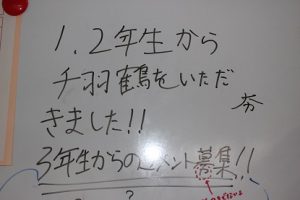 1,2年生から
千羽鶴をいただ
きました!!
3年生からのコメント募集!!